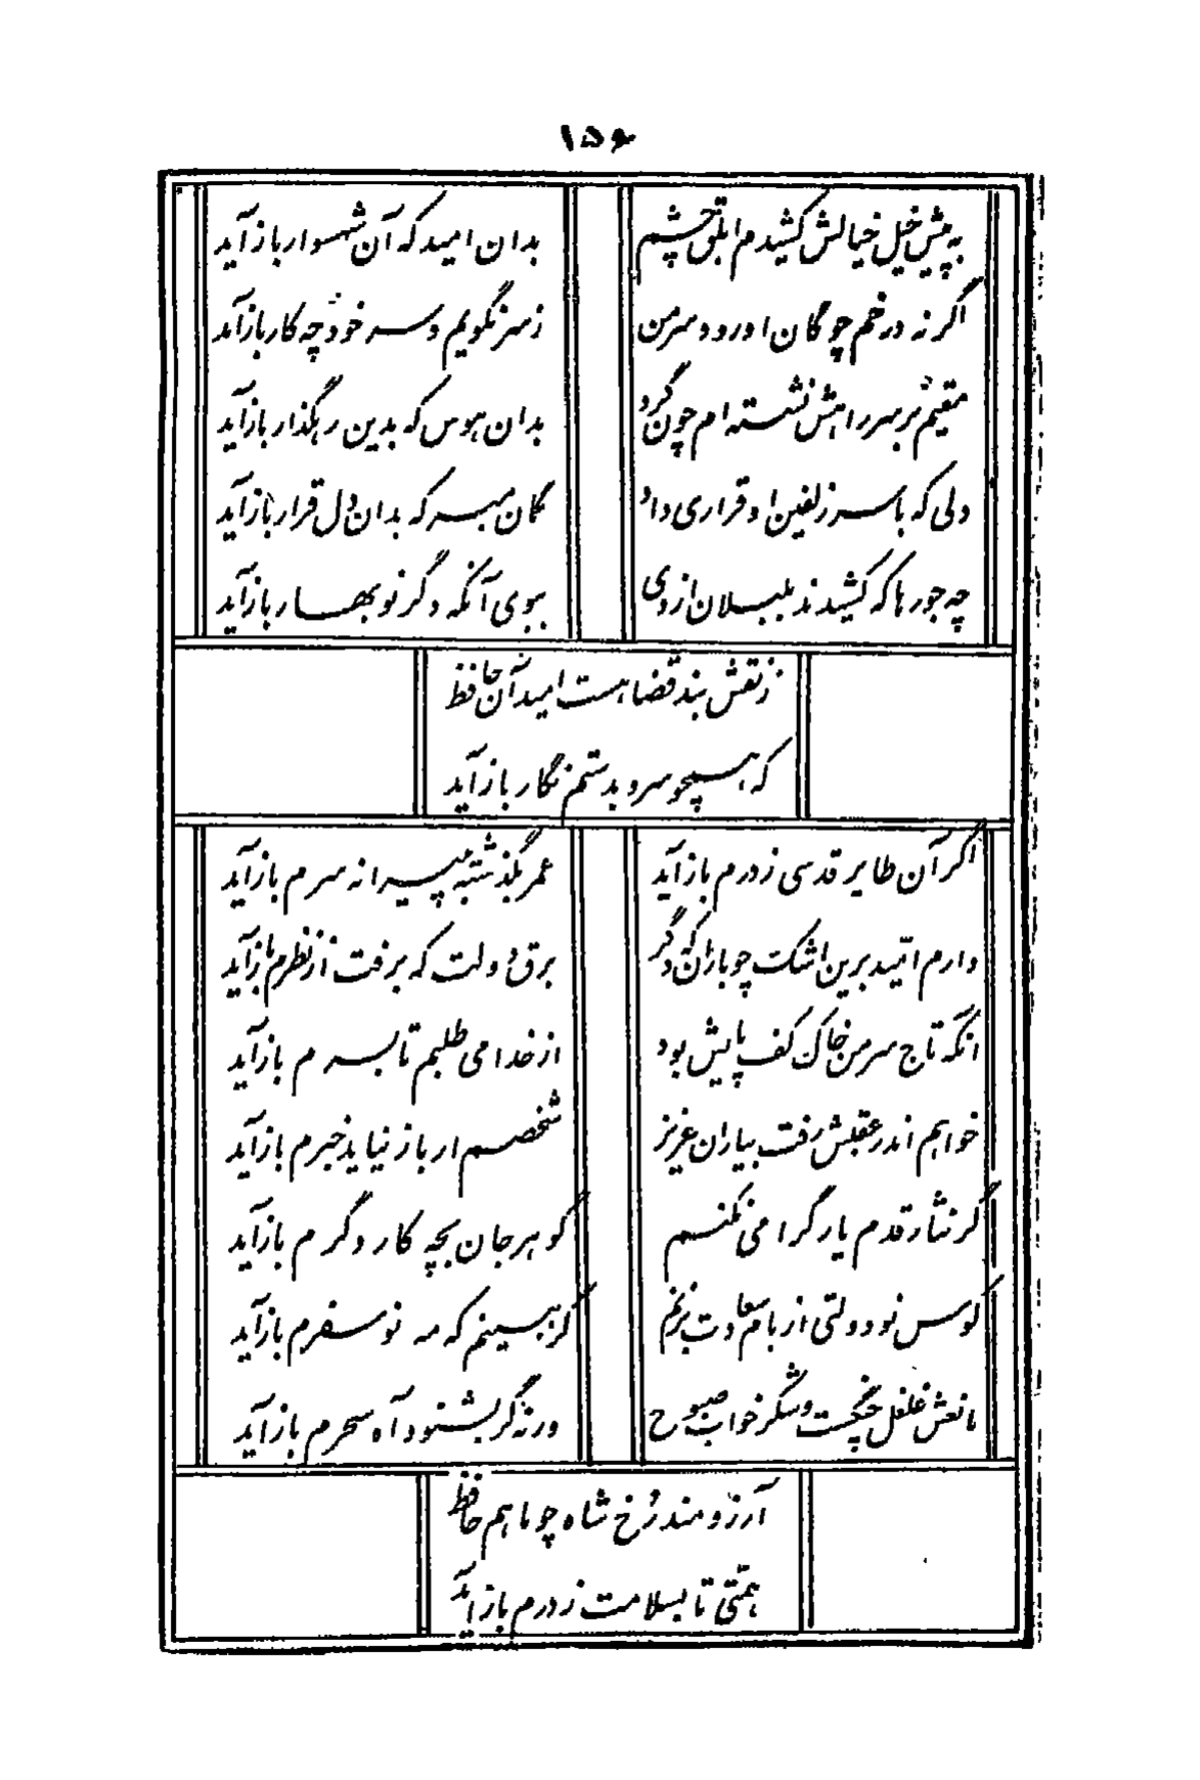 ۱۵۶
به پیش خیل خیالش کشیدم ابلق چشم
بدان امید که آن شهسوار باز آید
اگر نه در خم چوگان او رود سر من
ز سر نگویم و سر خود چه کار باز آید
مقیم بر سر راهش نشسته ام چون گرد
بدان هوس که بدین رهگذار باز آید
دلی که با سر زلفین او قراری داد
گمان مبر که بدان دل قرار باز آید
چه جورها که کشیدند بلبلان از دی
ببوی آنکه دگر نوبهار باز آید
ز نقش بند قضا هست امید آن حافظ
که همچو سرو بدستم نگار باز آید
اگر آن طایر قدسی ز درم باز آید
عمر بگذشته پیرانه سرم باز آید
دارم امّید برین اشک چو باران که دگر
برق دولت که برفت از نظرم باز آید
آنکه تاج سر من خاک کف پایش بود
از خدا می طلبم تا بسرم باز آید
خواهم اندر عقبش رفت بیاران عزیز
شخصم ار باز نیاید خبرم باز آید
گر نثار قدم یار گرامی نکنم
گوهر جان بچه کار دگرم باز آید
کوس نو دولتی از بام سعادت بزنم
گر ببینم که مه نو سفرم باز آید
مانعش غلغل چنگست و شکر خواب صبوح
ورنه گر بشنود آه سحرم باز آید
آرزومند رُخ شاه چو ماهم حافظ
همّتی تا بسلامت ز درم باز آید